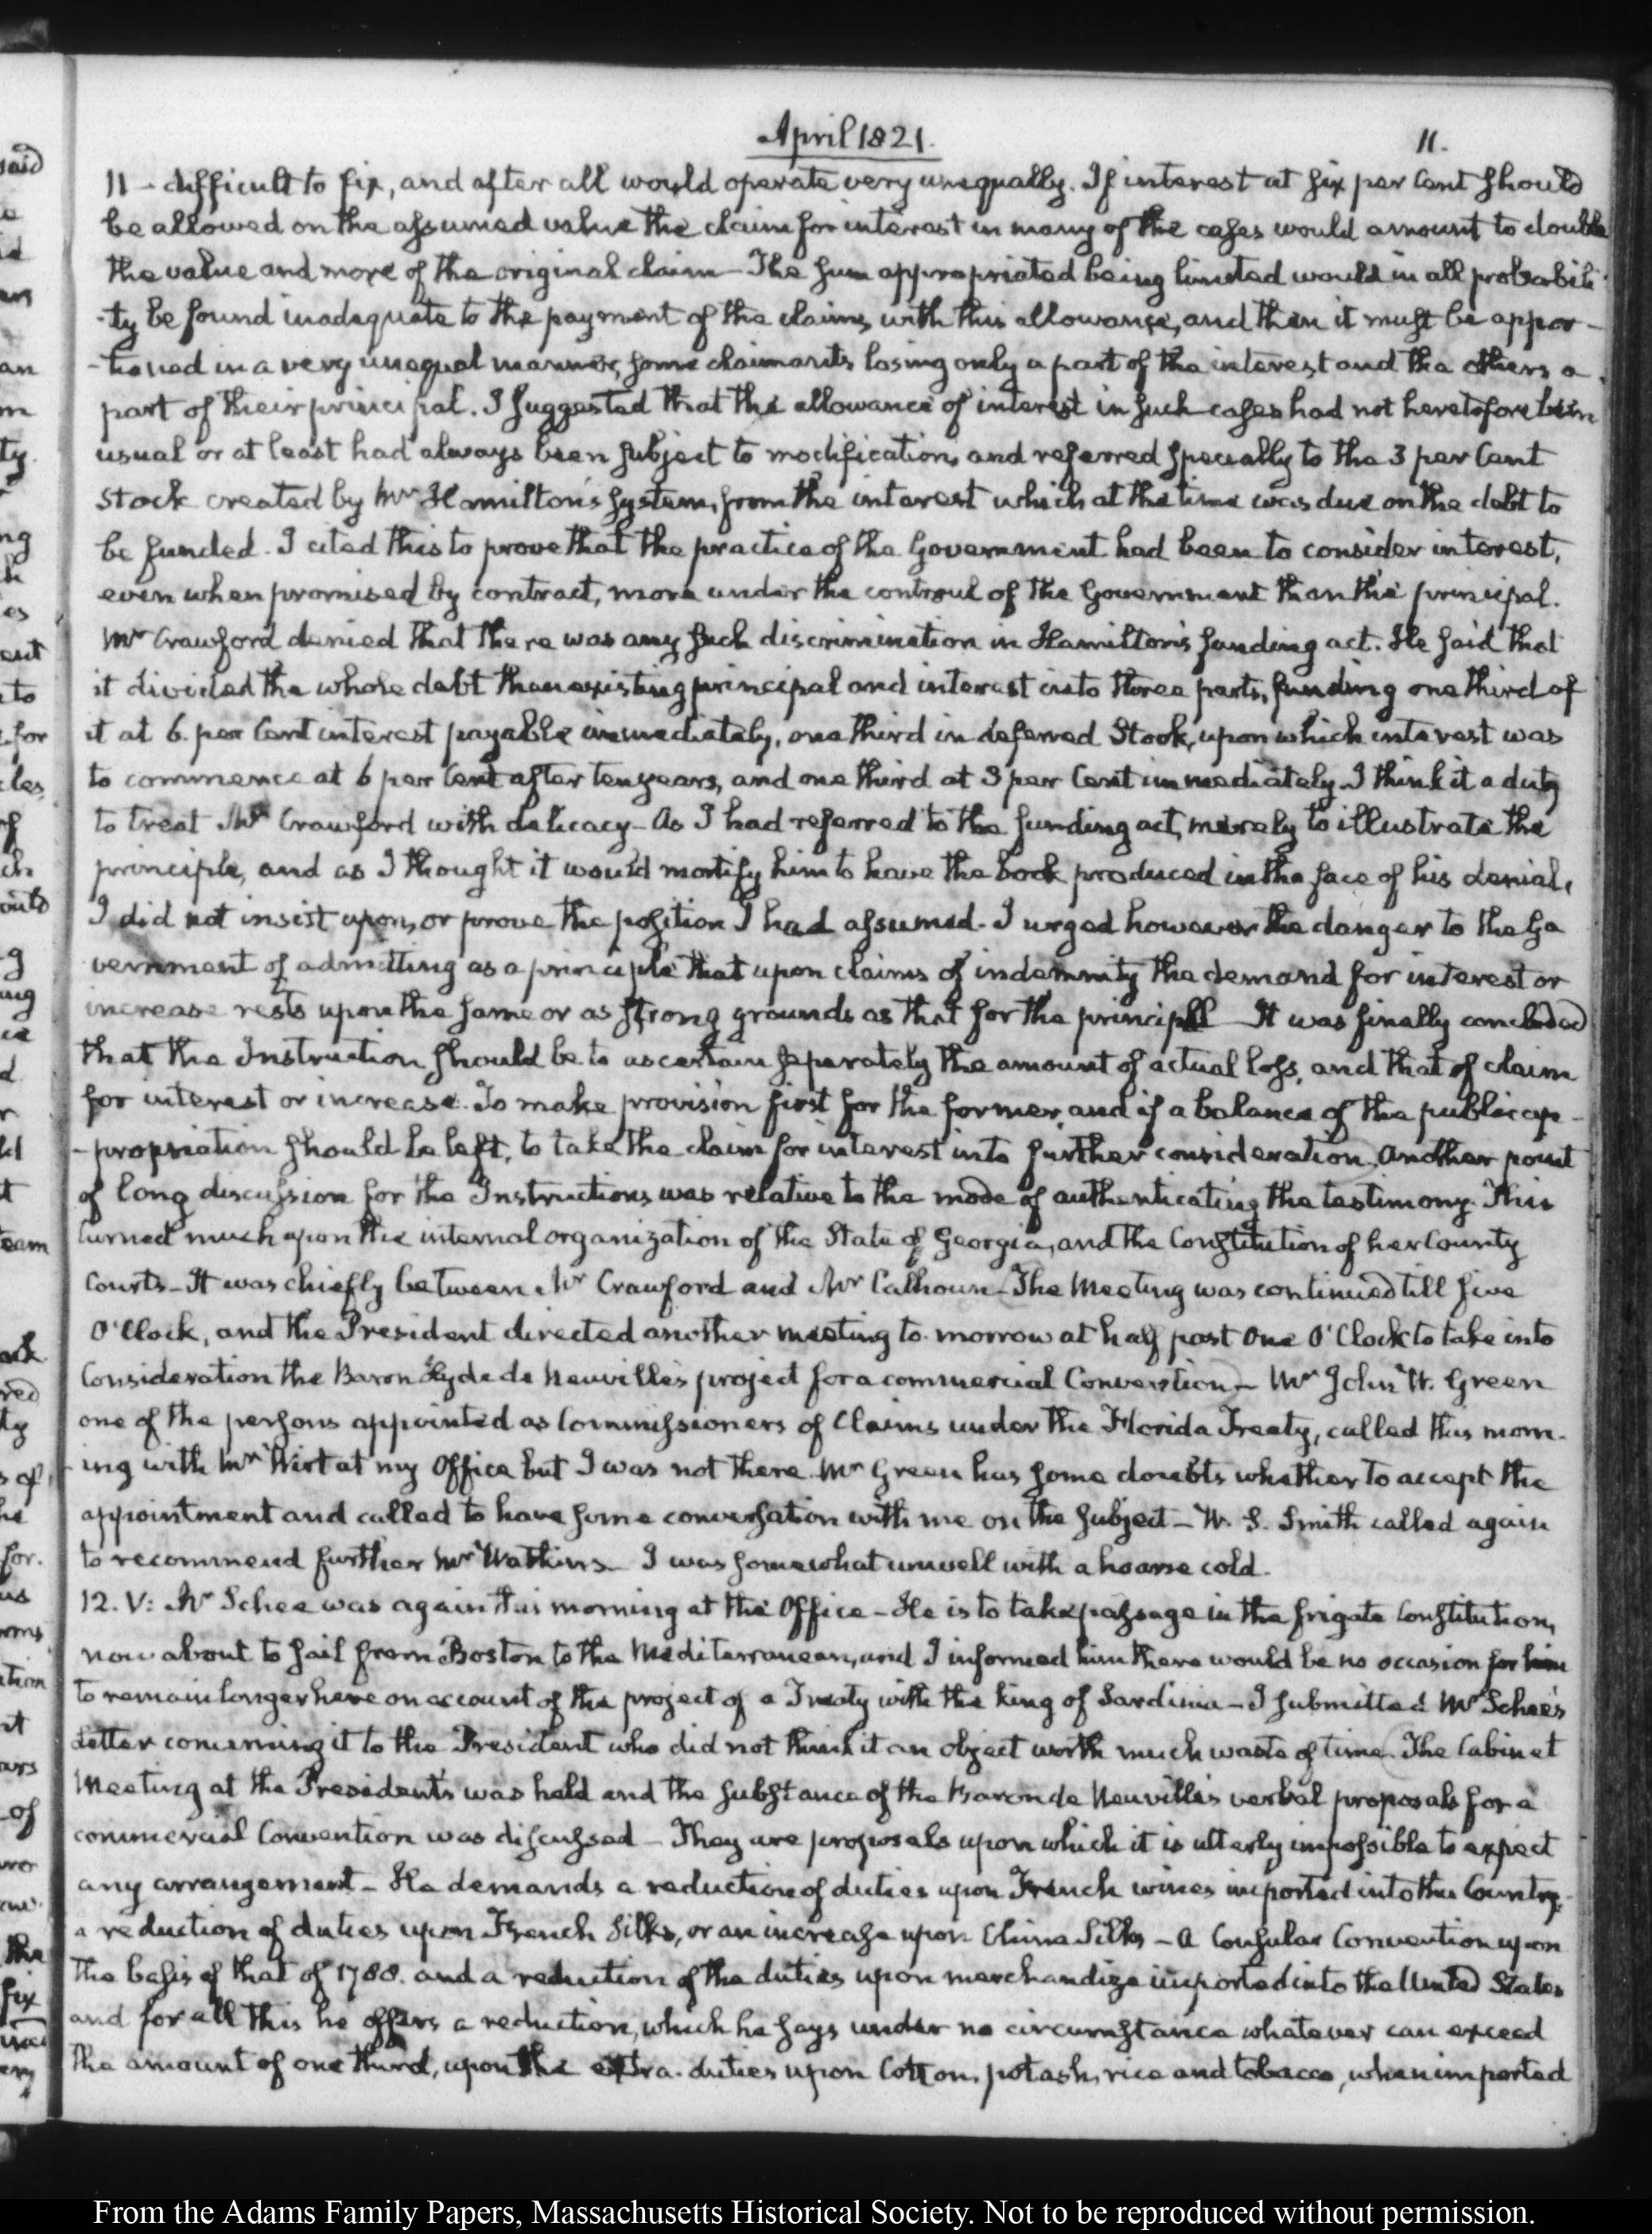 April 1821.
11.
11 - difficult to fix, and after all would operate very unequally. If interest at six per Cent should
be allowed on the assumed value the claim for interest in many of the cases would amount to double
the value and more of the original claim - The sum appropriated being limited would in all probabili-
-ty be found inadequate to the payment of the claims, with this allowance, and then it must be appor-
-tioned in a very unequal manner, some claimants losing only a part of the interest and the others a
part of their principal. I suggested that the allowance of interest in such cases had not heretofore been
usual or at least had always been subject to modification, and referred specially to the 3 per Cent
Stock created by Mr Hamilton's system, from the interest which at the time was due on the debt to
be funded. I cited this to prove that the practice of the Government had been to consider interest,
even when promised by contract, more under the controul of the Government than the principal.
Mr Crawford denied that there was any such discrimination in Hamilton's funding act. He said that
it divided the whole debt then existing principal and interest into three parts, funding one third of
it at 6. per Cent interest payable immediately, one third in deferred Stock, upon which interest was
to commence at 6 per Cent after ten years, and one third at 3 per Cent immediately. I think it a duty
to treat Mr Crawford with delicacy - As I had referred to the funding act, merely to illustrate the
principle, and as I thought it would mortify him to have the book produced in the face of his denial,
I did not insist upon, or prove the position I had assumed. I urged however the danger to the Go
vernment of admitting as a principle that upon claims of indemnity the demand for interest or
increase rests upon the same or as strong grounds as that for the principal - It was finally concluded
that the Instruction should be to ascertain separately the amount of actual loss, and that of claim
for interest or increase. To make provision first for the former, and if a balance of the public ap-
-propriation should be left, to take the claim for interest into further consideration. Another point
of long discussion for the Instructions was relative to the mode of authenticating the testimony. This
turned much upon the internal organization of the State of Georgia, and the Constitution of her County
Courts - It was chiefly between Mr Crawford and Mr Calhoun - The Meeting was continued till five
O'Clock, and the President directed another meeting to-morrow at half past One O'Clock to take into
Consideration the Baron Hyde de Neuville's project for a commercial Convention - Mr John W. Green
one of the persons appointed as Commissioners of Claims under the Florida Treaty, called this morn-
ing with Mr Wirt at my Office but I was not there. Mr Green has some doubts whether to accept the
appointment and called to have some conversation with me on the subject - W. S. Smith called again
to recommend further Mr Watkins - I was somewhat unwell with a hoarse cold.
12. V: Mr Schee was again this morning at the Office - He is to take passage in the frigate Constitution,
now about to sail from Boston to the Mediterranean, and I informed him there would be no occasion for him
to remain longer here on account of the project of a Treaty with the king of Sardinia - I submitted Mr Schee's
Letter concerning it to the President who did not think it an object worth much waste of time. The Cabinet
Meeting at the President's was held and the substance of the Baron de Neuville's verbal proposals for a
commercial Convention was discussed - They are proposals upon which it is utterly impossible to expect
any arrangement - He demands a reduction of duties upon French wines imported into this Country.
a reduction of duties upon French Silks, or an increase upon China Silks - A Consular Convention upon
the basis of that of 1788. and a reduction of the duties upon merchandize imported into the United States
and for all this he offers a reduction, which he says under no circumstance whatever can exceed
the amount of one third, upon the extra-duties upon Cotton, potash, rice and tobacco, when imported
From the Adams Family Papers, Massachusetts Historical Society. Not to be reproduced without permission.